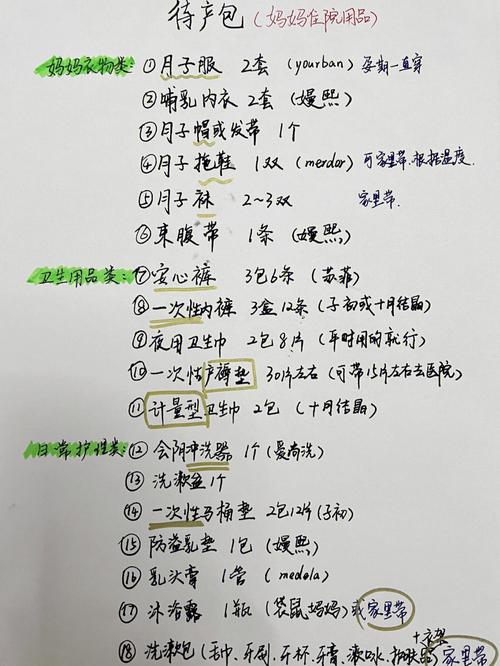 待产包（妈妈住院用品）
妈妈衣物类: ①月子服 2套 （yourban）孕期一直穿
②哺乳内衣 2套（嫚熙）
③月子帽或发带 1个
④月子拖鞋 1双（merdor）可家里带.根据温度.
⑤月子袜 2~3双 家里带.
⑥束腹带 1条（嫚熙）
卫生用品类: ⑦安心裤 3包6条（苏菲）
⑧一次性内裤 3盒12条（子初或十月结晶）
⑨夜用卫生巾 2包8片（平时用的就行）
⑩一次性产褥垫 30片左右（可带15片左右去医院）
⑪计量型卫生巾 2包（十月结晶）
日常护理类: ⑫会阴冲洗器 1个（曼尚洗）
⑬洗漱盆1个
⑭一次性马桶垫 2包12片（子初）
⑮防溢乳垫 1包（嫚熙）
⑯乳头膏 1管（medela）
⑰沐浴露 1瓶（袋鼠妈妈）或家里带
⑱洗漱包（毛巾.牙刷.牙杯.牙膏.漱口水.护肤品 家里带